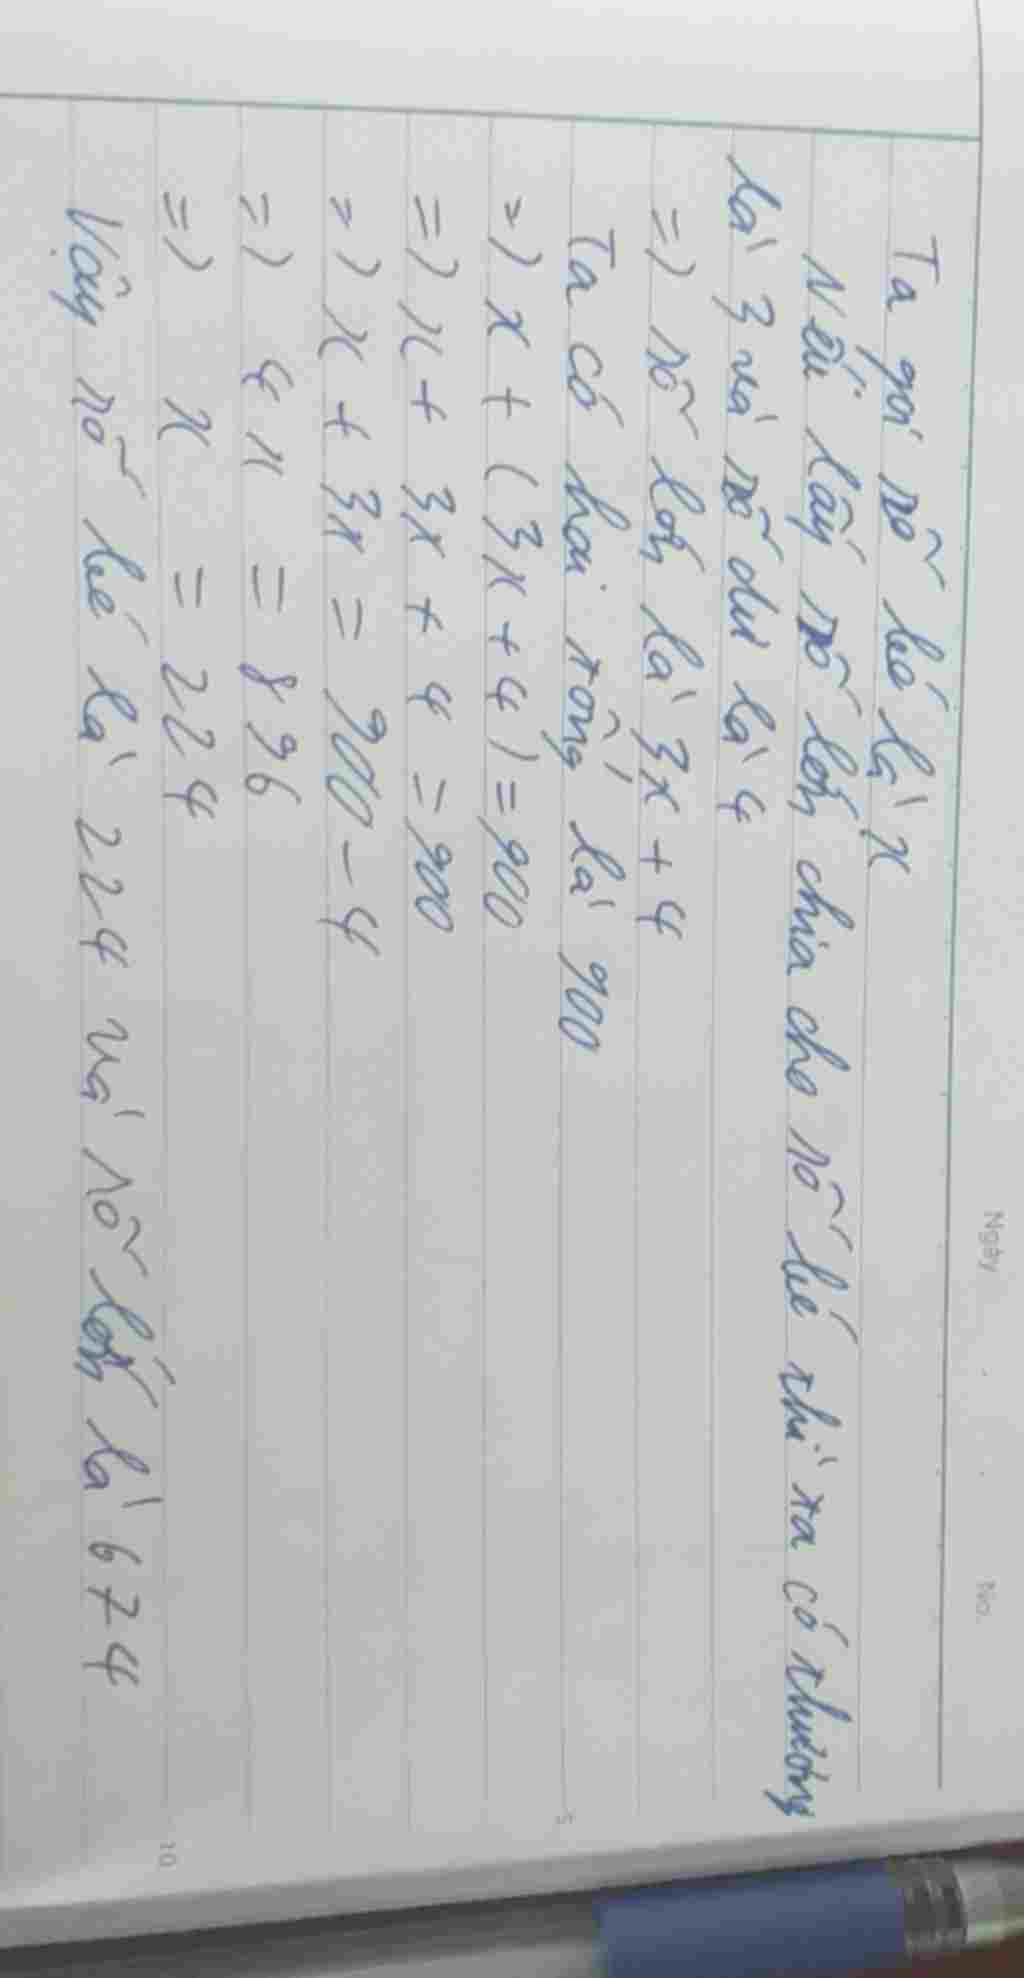 Ngày . . No.
Ta gọi số bé là x
Nếu lấy số lớn chia cho số bé thì ta có thương
là 3 và số dư là 4
=) số lớn là 3x + 4
Ta có hai tổng là 900
=) x + (3x + 4) = 900
=) x + 3x + 4 = 900
=) x + 3x = 900 - 4
=) 4x = 896
=) x = 224
Vậy số bé là 224 và số lớn là 674
5
10